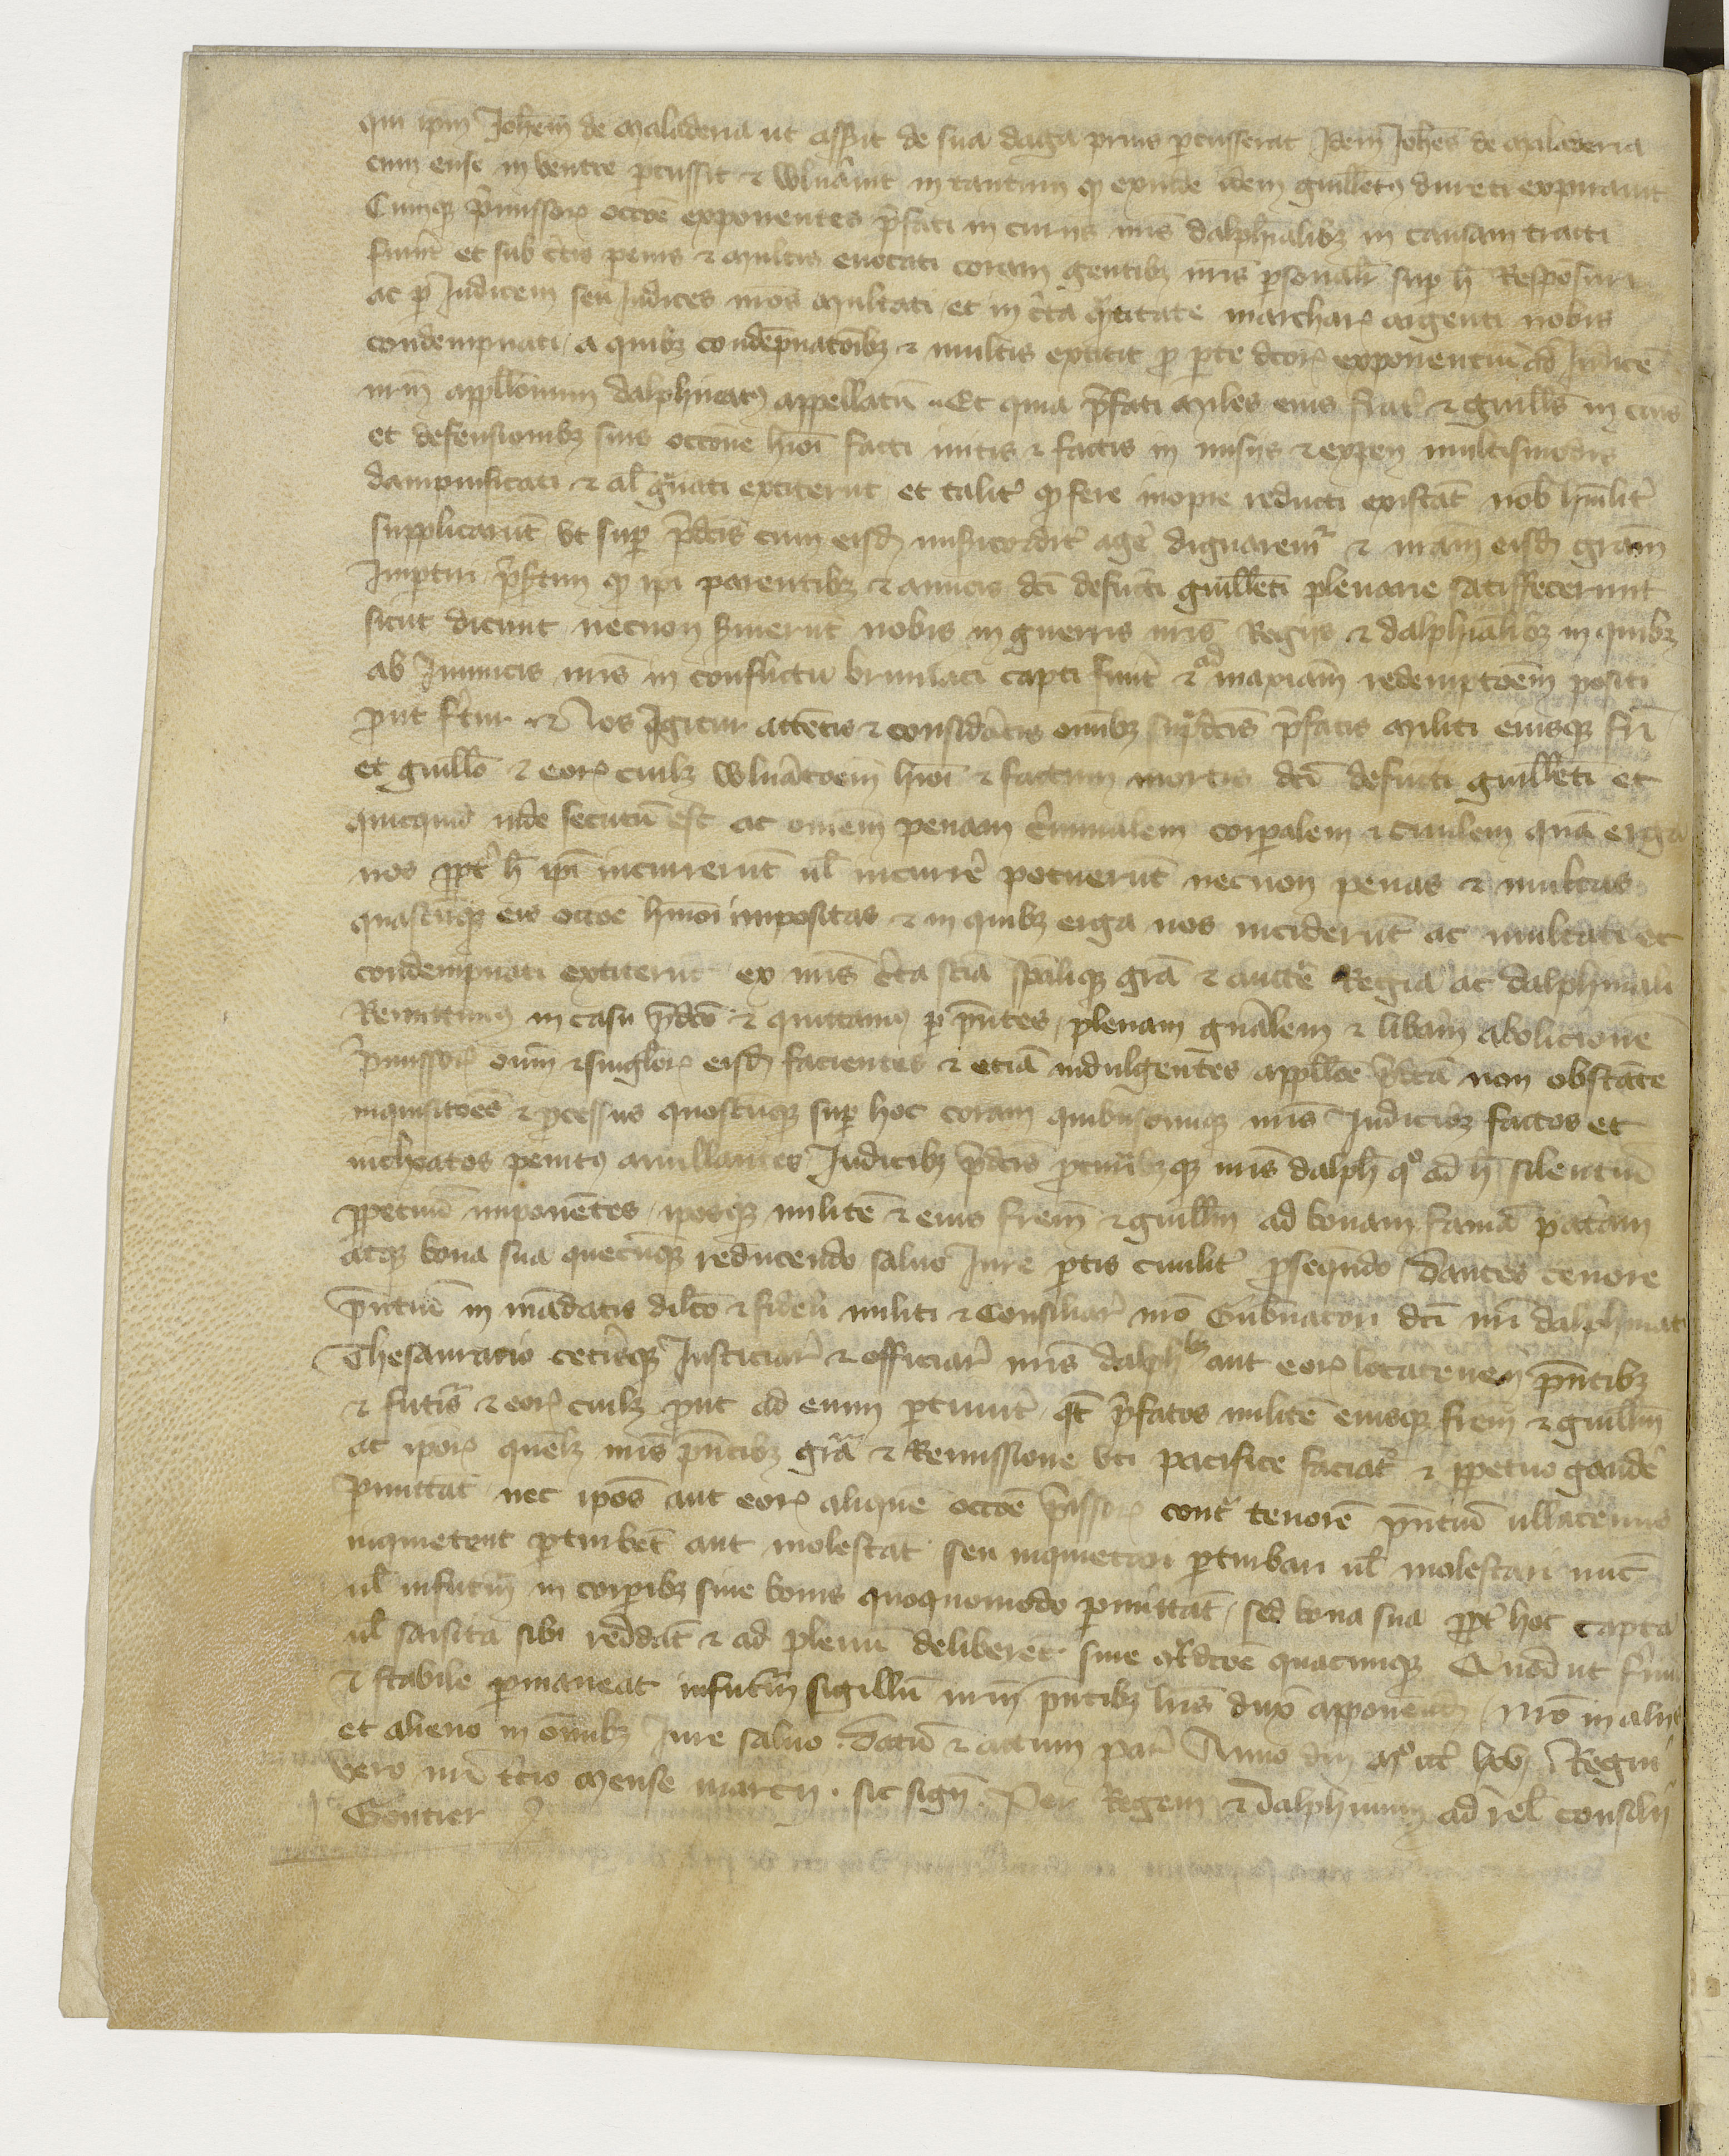 qui ipm̄ Joh̄em de maladeria ut assit de sua daga prius percusserat Idem Joh̄es de maladeria
eum ense in ventre percussit & vulnāvit in tantum qd exinde idem guill̄etus dureti expiravit
Cumque p̄missorꝝ occōe exponentes p̄fati in curiis nr̄is dalphīalibꝫ in causam tracti
fuīt et sub c̄tis penis & multis evocati coram gentibꝫ nr̄is p̱sonalr̄ sup h̄ Responsuri
ac p̱ Judicem seu Judices nr̄os multati et in c̄ta q̄titate marcharꝝ argenti nobis
condempnati a quibꝫ condēpnatoībꝫ & multis extitit p̱ p̱te dc̄orꝝ exponentiū ad Judicē
nrm̄ appll̄onum dalphinatꝰ appellatū Et quia p̄fati miles eius frat̄ & guill̄s in
et defensionibꝫ suis occōne hmōi facti initis & factis in misiis & expen multismodis
dampnificati & al̄ g̃vati extiterunt et talit̄ qd fere inopie reducti existāt nob hūilit̄
supplicarūt ut sup p̄dc̄is cum eisdꝫ misericordit̄ agē dignaremur & nr̄am eisdꝫ grām
Imptiri p̄sertim qd ipi parentibꝫ & amicis dc̄i defūcti guill̄eti plenarie satisfecerunt
sicut dicunt necnon s̄vierunt nobis in guerris nr̄is Regiis & dalphīalibꝫ in quibꝫ
ab Inimicis nr̄is in conflictu brinilaci capti fuīt & ad maxīam redemptoēm positi
prout f̄tur Nos Igitur attētis & considātis om̄ibꝫ sup̱dc̄is p̄fatis militi eiusque frī
et guill̄o & eorꝝ cuilꝫ vuln̄atoēm hmōi & factum mortis dc̄i defūcti guill̄eti et
quicquid inde secutū est ac omnem penam c̄iminalem corporalem & civilem quā erga
nos ppt̄ h̄ ipī incurrerūt vl̄ incurrē potuerūt necnon penas & multas
quascūque eis occōe hmōi impositas & in quibꝫ erga nos inciderūt ac multati et
condempnati extiterunt ex nr̄is c̄ta sciā sp̄alique grā & auctē Regia ac dalphinali
Remittimꝰ in casu p̄dc̄o & quittamꝰ p̱ pn̄tes plenam gn̄alem & libam abolitionē
p̄missorꝝ om̄m & singlorꝝ eisdꝫ facientes & etiā indulgentes appllōe p̄dc̄a non obstāte
inquisitoēs & p̱cessus quoscūque sup hoc coram quibuscunque nr̄is Judicibꝫ factos et
inchoatos penitꝰ anullantes Judicibꝫ p̄dc̄is p̱curībꝫque nr̄is dalph̄ qo ad h̄ silentiū
ppetuū imponētes iposque militē & eius frēm & guill̄m ad bonam famā pat̄am
atque bona sua quecūque reducendo salvo Jure p̱tis civilit̄ p̱sequendo Dantes tenore
pn̄tiū in mādatis dilc̄o & fideli militi & Consiliar̄ nr̄o Gubnatori dc̄i nr̄i dalphinat
Thesaurario ceterisque Justiciar̄ & officiar̄ nr̄is dalph̄lbꝫ aut eorꝝ locatenen pn̄tibꝫ
& futris & eorꝝ cuilꝫ prout ad eum p̱tinuīt qt̄ p̄fatos militē eiusque frēm & guill̄m
ac iporꝝ quēlꝫ nr̄is pn̄tibꝫ grā & Remissione uti pacifice faciāt & ppetuo gaudē
p̱mittāt nec ipōs aut eorꝝ aliquē occōe p̄missorꝝ cont̄ tenorē pn̄tiū ullatenus
inquietent p̱turbēt aut molestāt seu inquietari p̱turbari vl̄ molestari nūc
vl̄ infutm̄ in corporibꝫ sive bonis quoquomodo p̱mittāt sed bona sua ppt̄ hoc capta
vl̄ saisita sibi reddāt & ad plenū deliberēt sine cont̄dcōe quacunque Quod ut firm
& stabile p̱maneat infutm̄ sigillū nrm̄ pn̄tibꝫ lr̄is duxīꝰ apponendꝫ Nr̄o in aliis
et alieno in om̄ibꝫ Jure salvo Datū & actum par̄ Anno dn̄i mo cccc lxv Regni
vero nr̄i t̄cio mense marcii. sic sign̄. Per Regem & dalphinum ad rel̄ consilii
Gontier